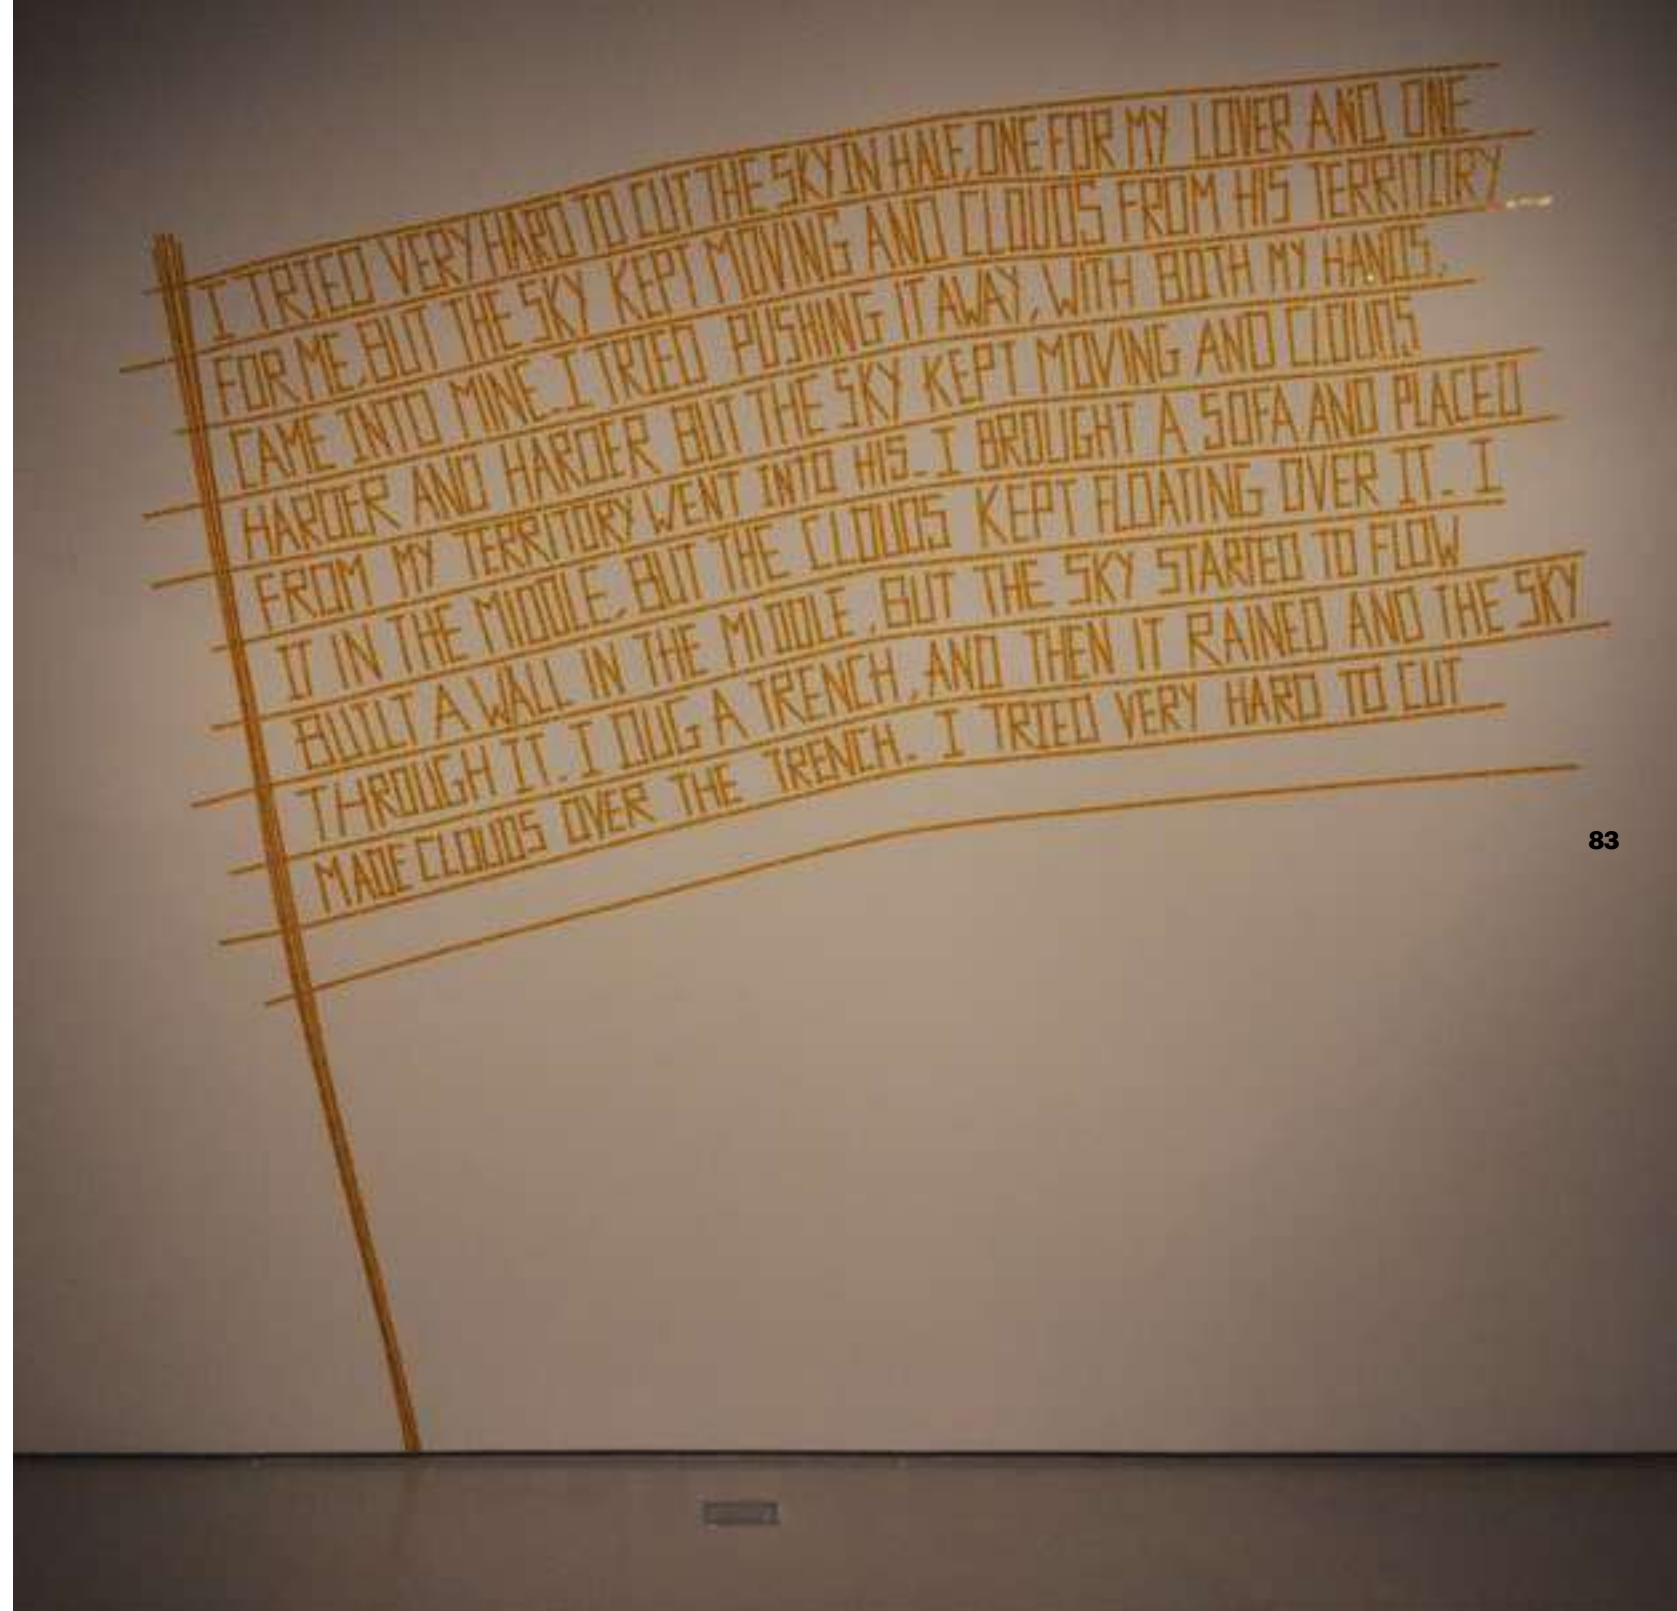 I TRIED VERY HARD TO CUT THE SKY IN HALF, ONE FOR MY LOVER AND ONE
FOR ME, BUT THE SKY KEPT MOVING AND CLOUDS FROM HIS TERRITORY
CAME INTO MINE. I TRIED PUSHING IT AWAY, WITH BOTH MY HANDS,
HARDER AND HARDER BUT THE SKY KEPT MOVING AND CLOUDS
FROM MY TERRITORY WENT INTO HIS. I BROUGHT A SOFA AND PLACED
IT IN THE MIDDLE, BUT THE CLOUDS KEPT FLOATING OVER IT. I
BUILT A WALL IN THE MIDDLE, BUT THE SKY STARTED TO FLOW
THROUGH IT. I DUG A TRENCH, AND THEN IT RAINED AND THE SKY
MADE CLOUDS OVER THE TRENCH. I TRIED VERY HARD TO CUT
83